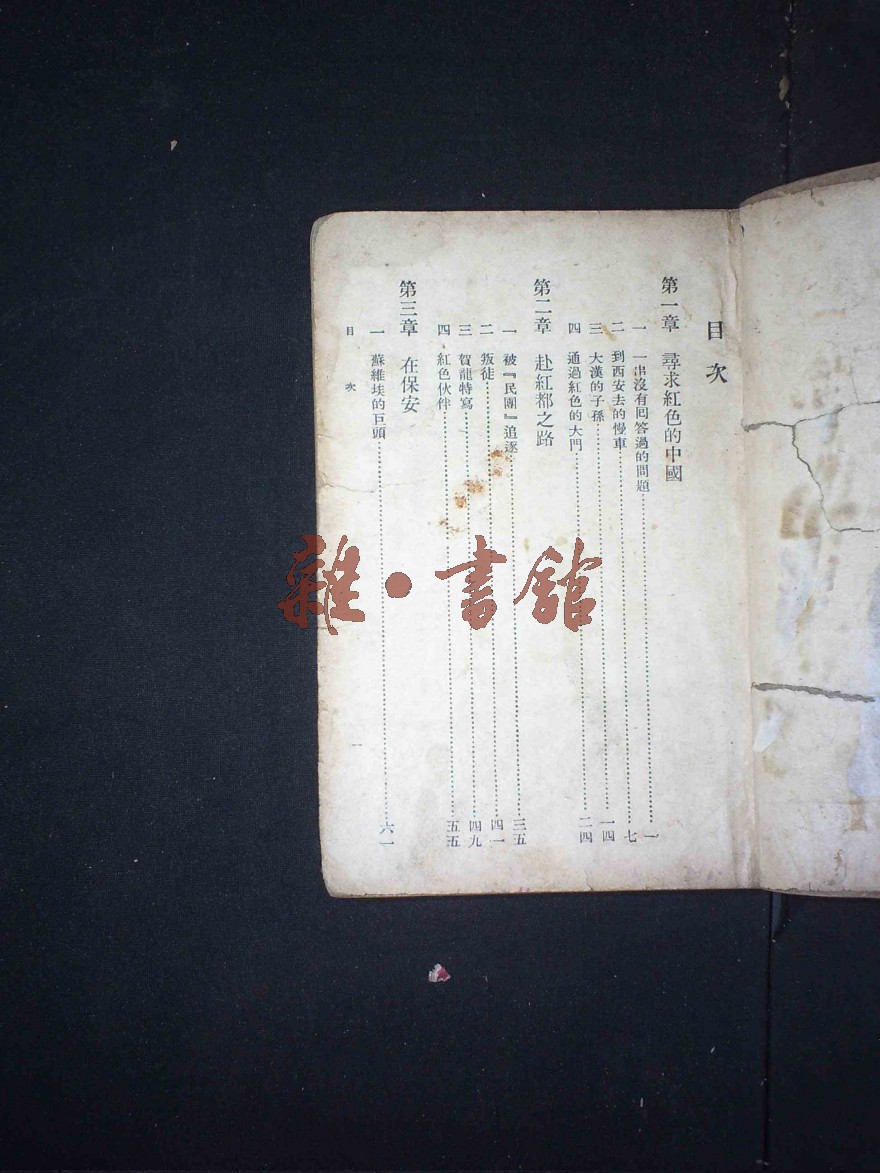 目次
第一章 尋求紅色的中國
一 一串沒有回答過的問題……一
二 到西安去的慢車……七
三 大漢的子孫……一四
四 通過紅色的大門……二四
第二章 赴紅都之路
一 被『民團』追逐……三五
二 叛徒……四一
三 賀龍特寫……四九
四 紅色伙伴……五五
第三章 在保安
一 蘇維埃的巨頭……六一
目次
一
雜·書館